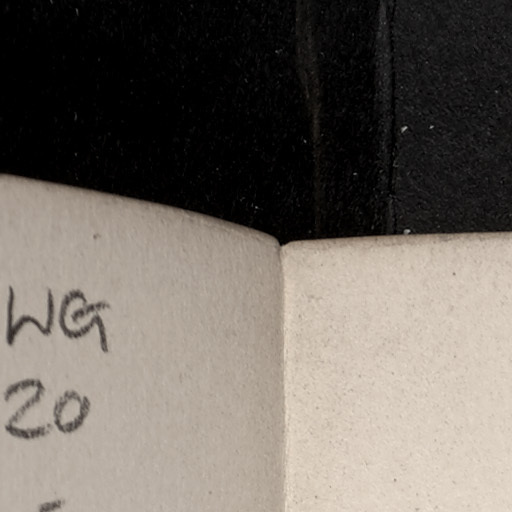 WG
20